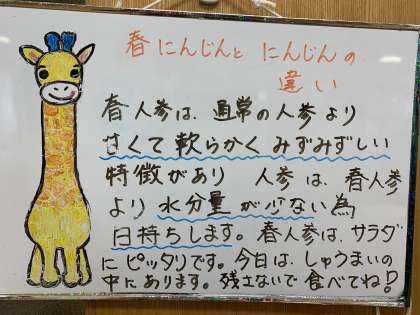 春にんじんと にんじんの
違い
春人参は、通常の人参より
甘くて軟らかくみずみずしい
特徴があり 人参は、春人参
より水分量が少ない為
日持ちします。春人参は、サラダ
にピッタリです。今日は、しゅうまいの
中にあります。残さないで食べてね!